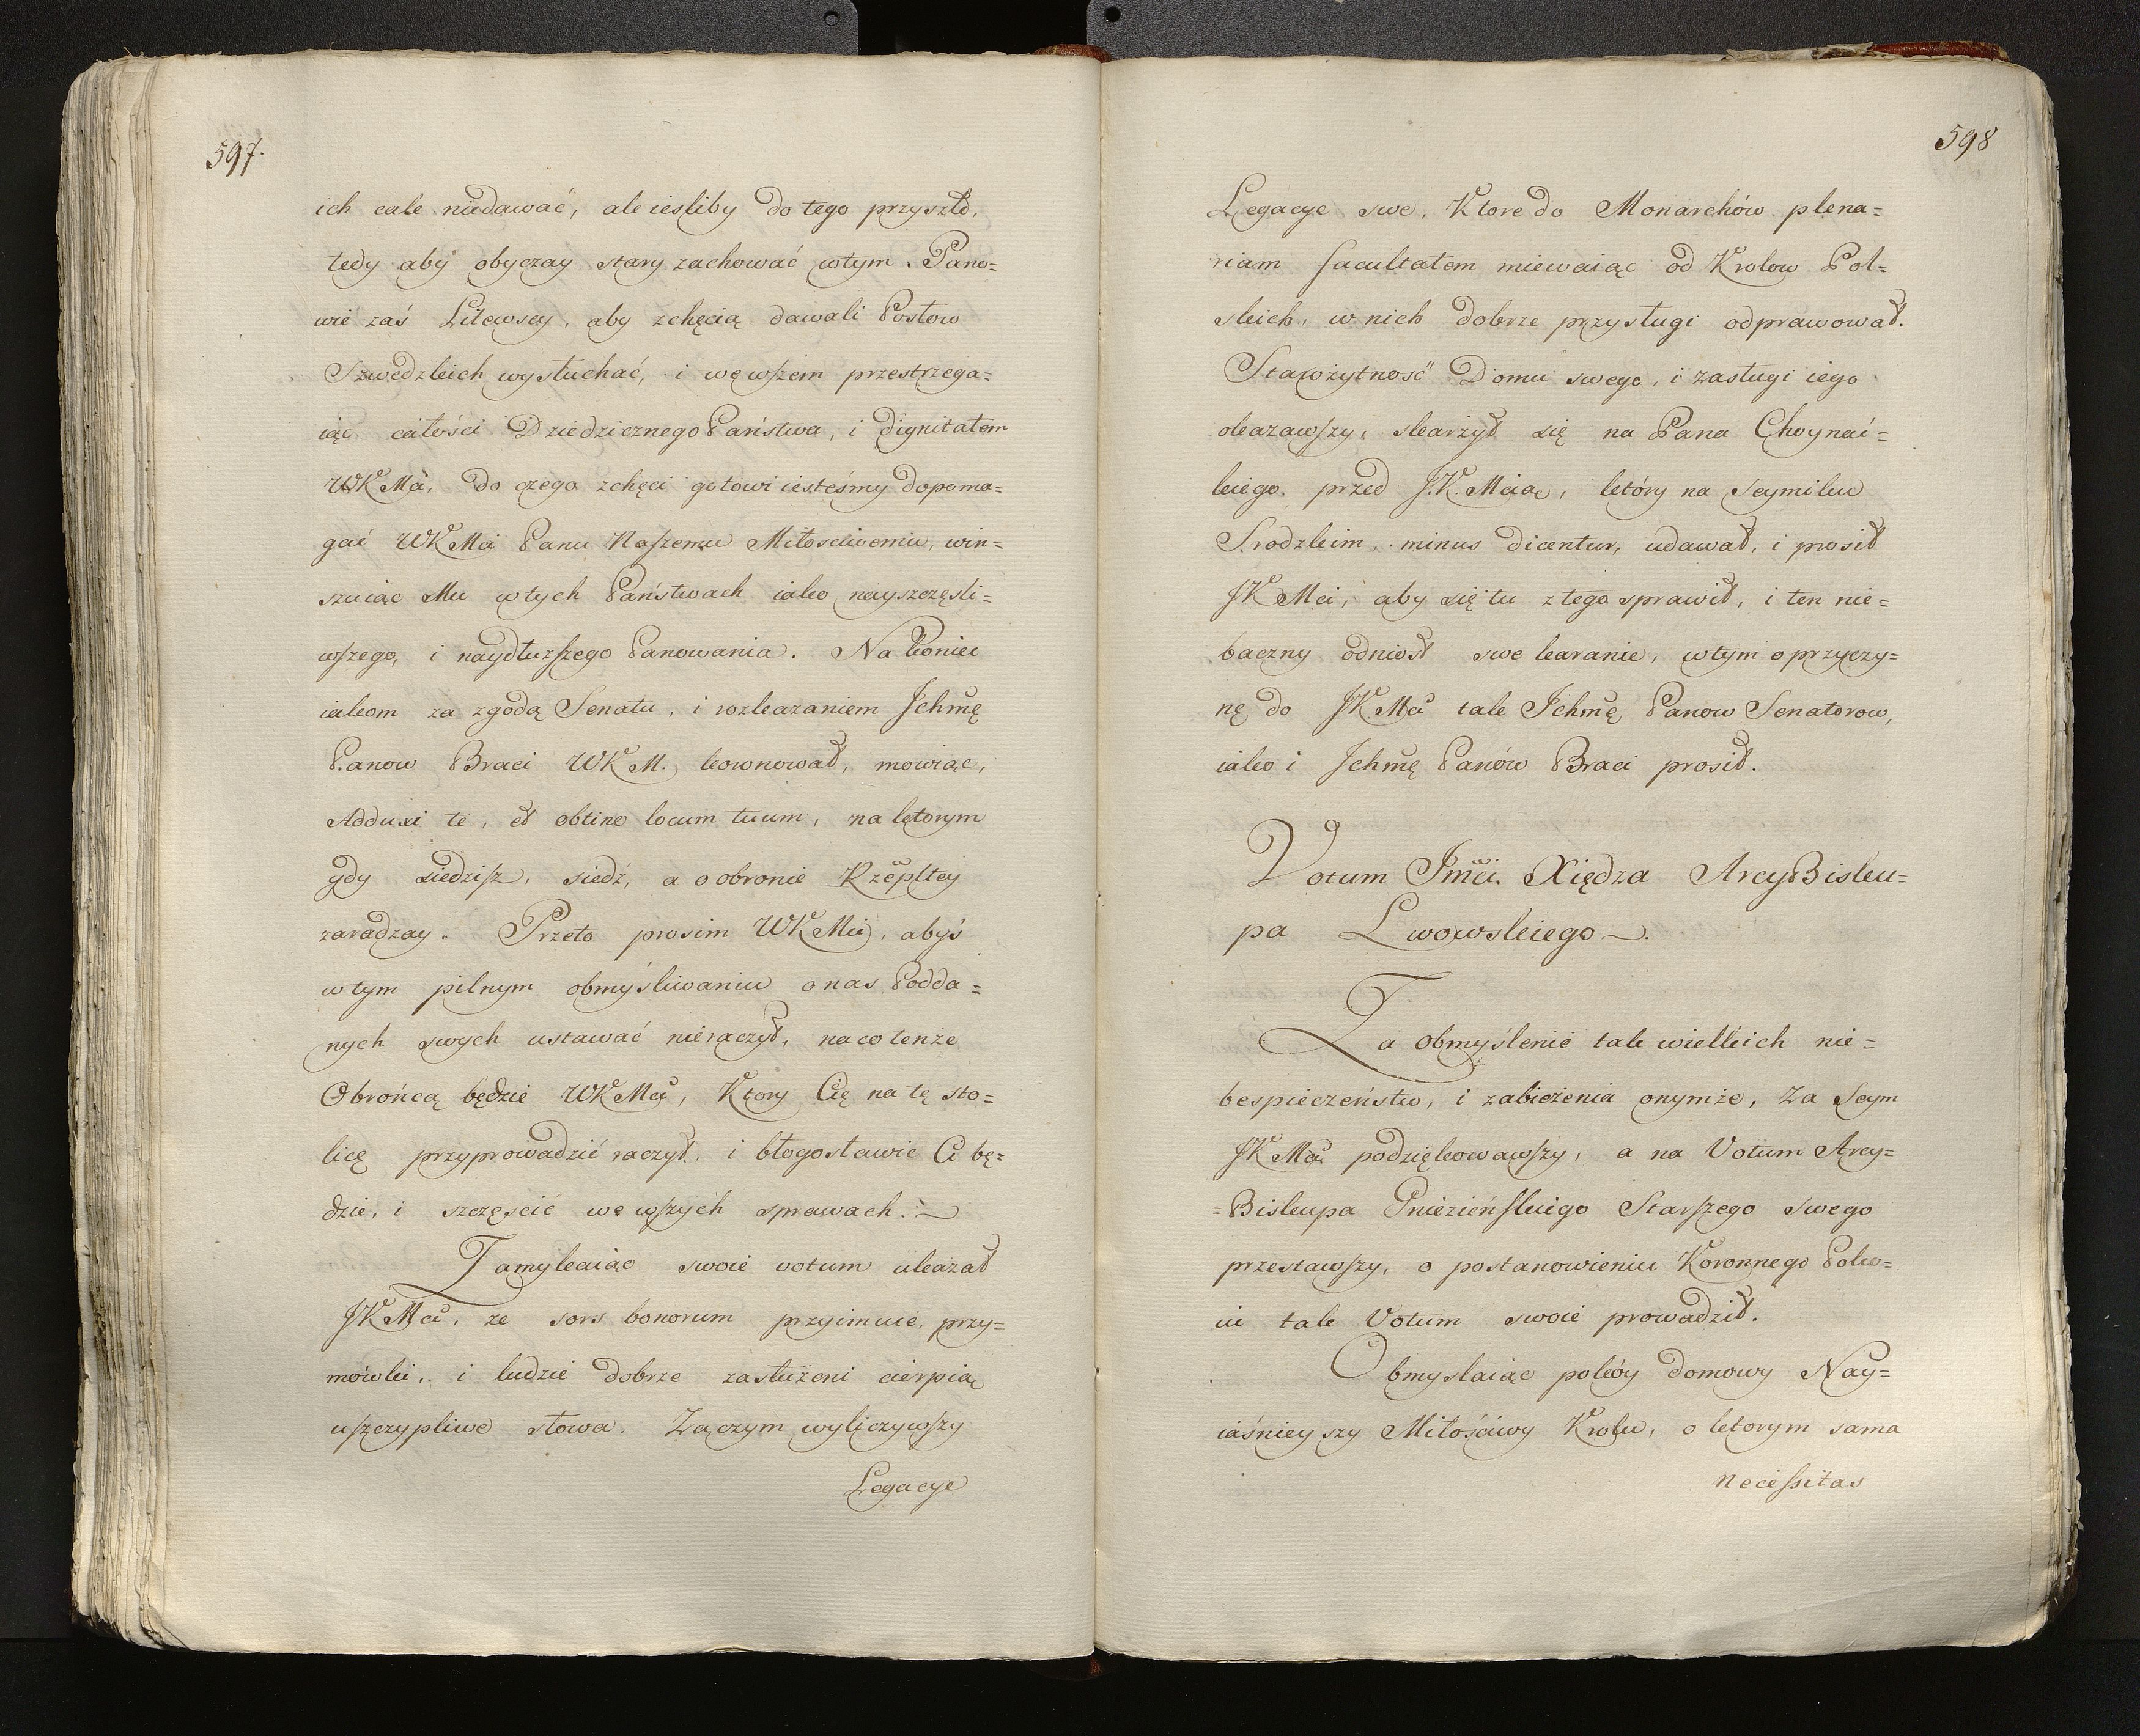 597.
ich cale niedawać, ale iesliby do tego przyszło,
tedy aby obyczay stary zachować wtym. Pano=
wie zaś Litewscy, aby zchęcią dawali Posłow
Szwedzkich wysłuchać, i wewszem przestrzega=
iąc całości Dziedzicznego Państwa, i dignitatem
WKMci, do czego zchęci gotowi iesteśmy dopoma=
gać WKMci Panu Naszemu Miłosciwemu, win=
szuiąc Mu wtych Państwach iako nayszczęsli=
wszego, i naydłuzszego Panowania. Na koniec
iakom za zgodą Senatu, i rozkazaniem Ichmę
Panow Braci WKM. koronował, mowiąc,
Adduxi te, et obtine locum tuum, na ktorym
gdy siedzisz, siedź, a o obronie Rzepltey
zaradzay. Przeto prosim WKMci, abyś
wtym pilnym obmyśliwaniu o nas Podda=
nych swych ustawać nieraczył, na co tenże
Obrońcą będzie WKMci, Ktory Cię na tę sto=
licę przyprowadzić raczył, i błogosławić Ci bę=
dzie, i szczęscić we wszych sprawach.
Zamykaiąc swoie votum ukazał
JKMci, ze sors bonorum przyimuie, przy=
mówki, i ludzie dobrze zasłużeni cierpią
uszczypliwe słowa. Zaczym wyliczywszy
Legacye
598
Legacye swe, Ktore do Monarchów plena=
riam facultatem miewaiąc od Krolow Pol=
skich, w nich dobrze przysługi odprawował.
Starożytność Domu swego, i zasługi iego
okazawszy, skarżył się na Pana Choynac=
kiego przed J.K.Mcią, który na Seymiku
Srodzkim, minus dicentur, udawał, i prosił
JKMci, aby się tu z tego sprawił, i ten nie=
baczny odniosł swe karanie, wtym o przyczy=
nę do JKMci tak Ichmę Panow Senatorow,
iako i Ichmę Panów Braci prosił.
Votum Jmci. Xiędza ArcyBisku=
pa Lwowskiego.
Za obmyślenie tak wielkich nie=
bespieczeństw, i zabieżenia onymże, Za Seym
JKMci podziękowawszy, a na Votum Arcy=
=Biskupa Gnieźieńskiego Starszego swego
przestawszy, o postanowieniu Koronnego Poko=
iu tak Votum swoie prowadził.
Obmyslaiąc pokóy domowy Nay=
iaśnieyszy Miłościwy Krolu, o ktorym sama
necessitas